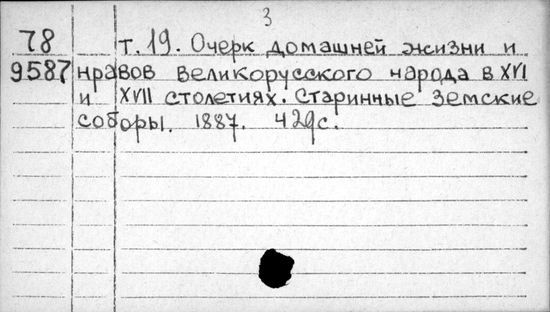 3
78 т. 19. Очерк домашней жизни и
9587 нравов великорусского народа в XVI
и XVII столетиях. Старинные земские
соборы. 1887. 429с.